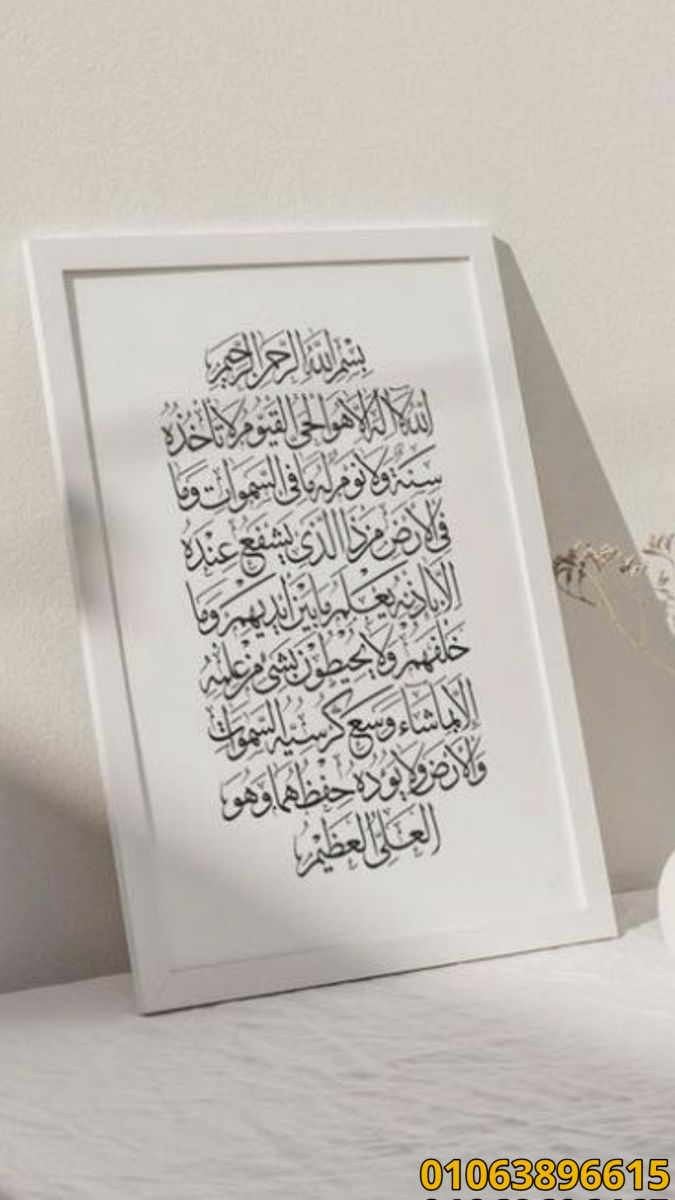 بسم الله الرحمن الرحيم
الله لا اله الا هو الحي القيوم لا تأخذه
سنة ولا نوم له ما في السموات وما
في الارض من ذا الذي يشفع عنده
الا باذنه يعلم ما بين ايديهم وما
خلفهم ولا يحيطون بشيء من علمه
الا بما شاء وسع كرسيه السموات
والارض ولا يؤده حفظهما وهو
العلي العظيم
01063896615